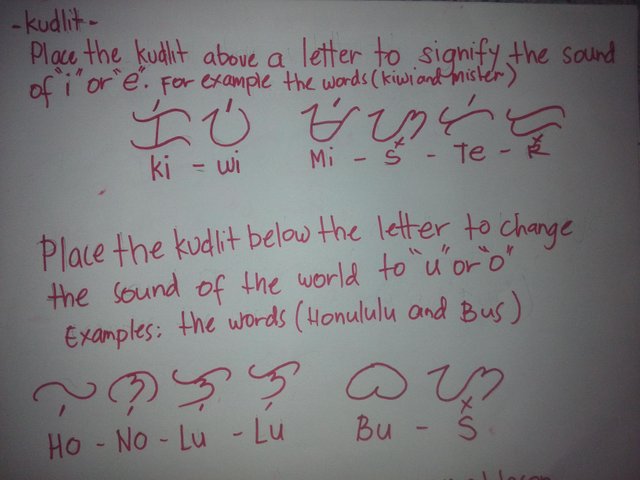 -kudlit-
Place the kudlit above a letter to signify the sound
of "i" or "e". For example the words (kiwi and mister)
ᜃᜒ ᜏᜒ ᜋᜒ ᜐ᜔ ᜆᜒ ᜇ᜔
ki - wi Mi - S - Te - R
Place the kudlit below the letter to change
the sound of the world to "u" or "o"
Examples: the words (Honululu and Bus)
ᜑᜓ ᜈᜓ ᜎᜓ ᜎᜓ ᜊᜓ ᜐ᜔
Ho - No - Lu - Lu Bu - S